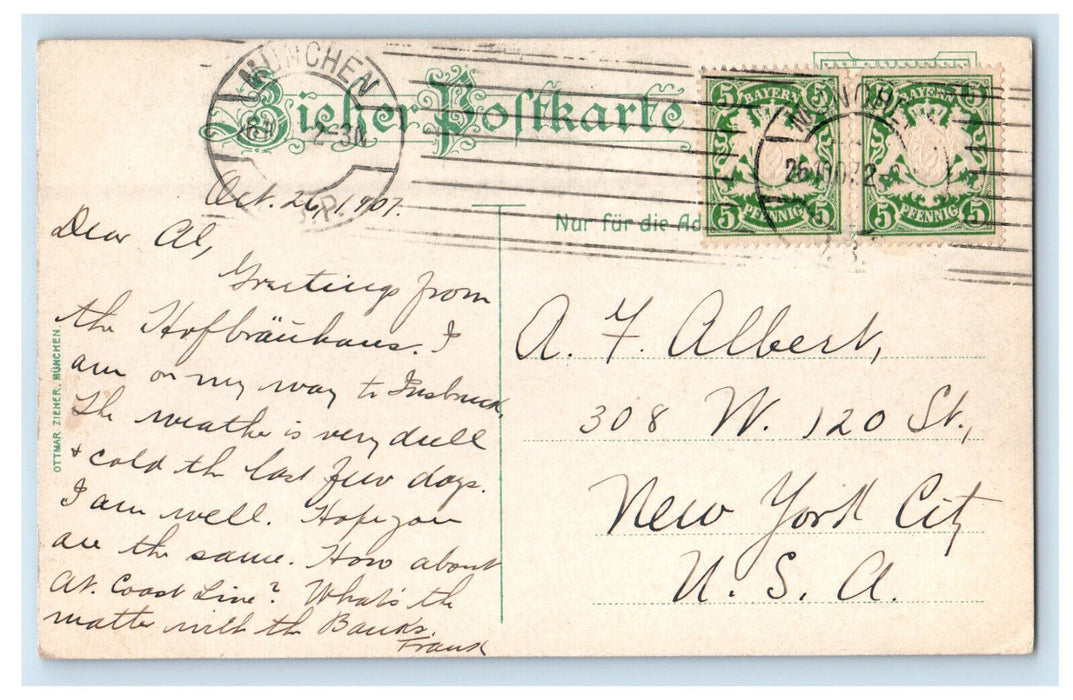 MÜNCHEN
Zieher Postkarte
2-3N
BAYERN
5 5
PFENNIG
5 5
BAYERN
5 5
PFENNIG
5 5
Nur für die Ad
Oct. 26, 1907.
Dear Al,
Greetings from
the Hofbräuhaus. I
am on my way to Insbruck.
The weather is very dull
+ cold the last few days.
I am well. Hope you
are the same. How about
At. Coast Line? What's the
matter with the Banks.
Frank
A. F. Albert,
308 W. 120 St.,
New York City
U. S. A.
OTTMAR ZIEHER, MÜNCHEN.